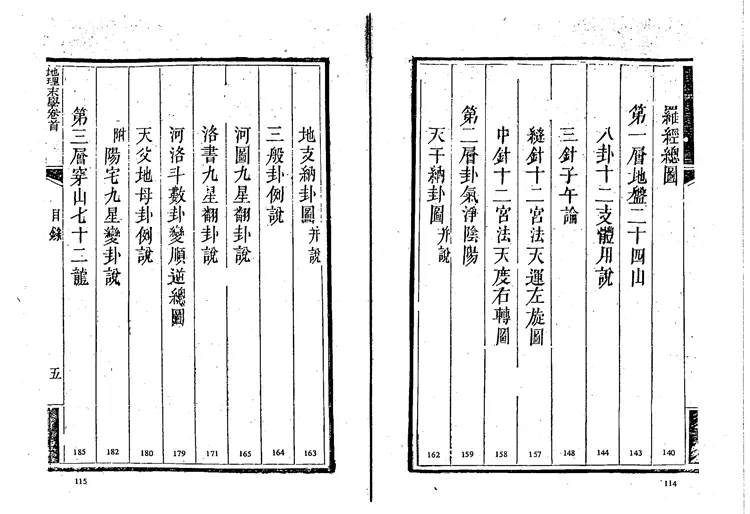 羅經總圖 140
第一層地盤二十四山 143
八卦十二支體用說 144
三針子午論 148
縫針十二宮法天運左旋圖 157
中針十二宮法天度右轉圖 158
第二層卦氣淨陰陽 159
天干納卦圖并說 162
114
地支納卦圖并說 163
三般卦例說 164
河圖九星翻卦說 165
洛書九星翻卦說 171
河洛斗數卦變順逆總圖 179
天父地母卦例說 180
附陽宅九星變卦說 182
第三層穿山七十二龍 185
地理末學卷首
目錄
五
115